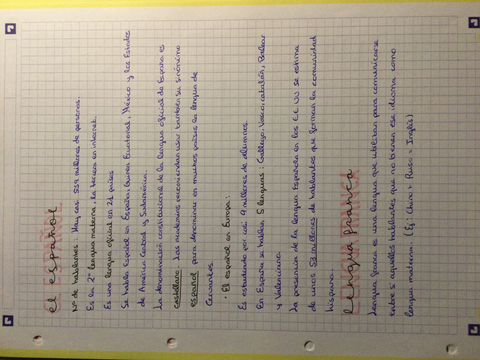 el español
Nº de hablantes: Hay casi 559 millones de personas.
Es la 2ª lengua materna, la tercera en internet.
Es una lengua oficial en 21 países
Se habla Español en España, Guinea Ecuatorial, México y los Estados
de América Central y Sudamérica.
La denominación constitucional de la lengua oficial de España es
castellano. Las academias recomiendan usar también su sinónimo
español para denominar en muchos países en lengua de
Cervantes.
· El español en Europa:
Es estudiado por casi 9 millones de alumnos.
En España se hablan 5 lenguas: Gallego, Vasco, catalán,
y Valenciano
La presencia de la lengua Española en los EE.UU se estima
de unos 53 millones de hablantes que forman la comunidad
hispana.
Lengua franca
Lengua franca es una lengua que utilizan para comunicarse
entre sí aquellos hablantes que no tienen ese idioma como
lengua materna. (Ej: Chino + Ruso = Inglés)